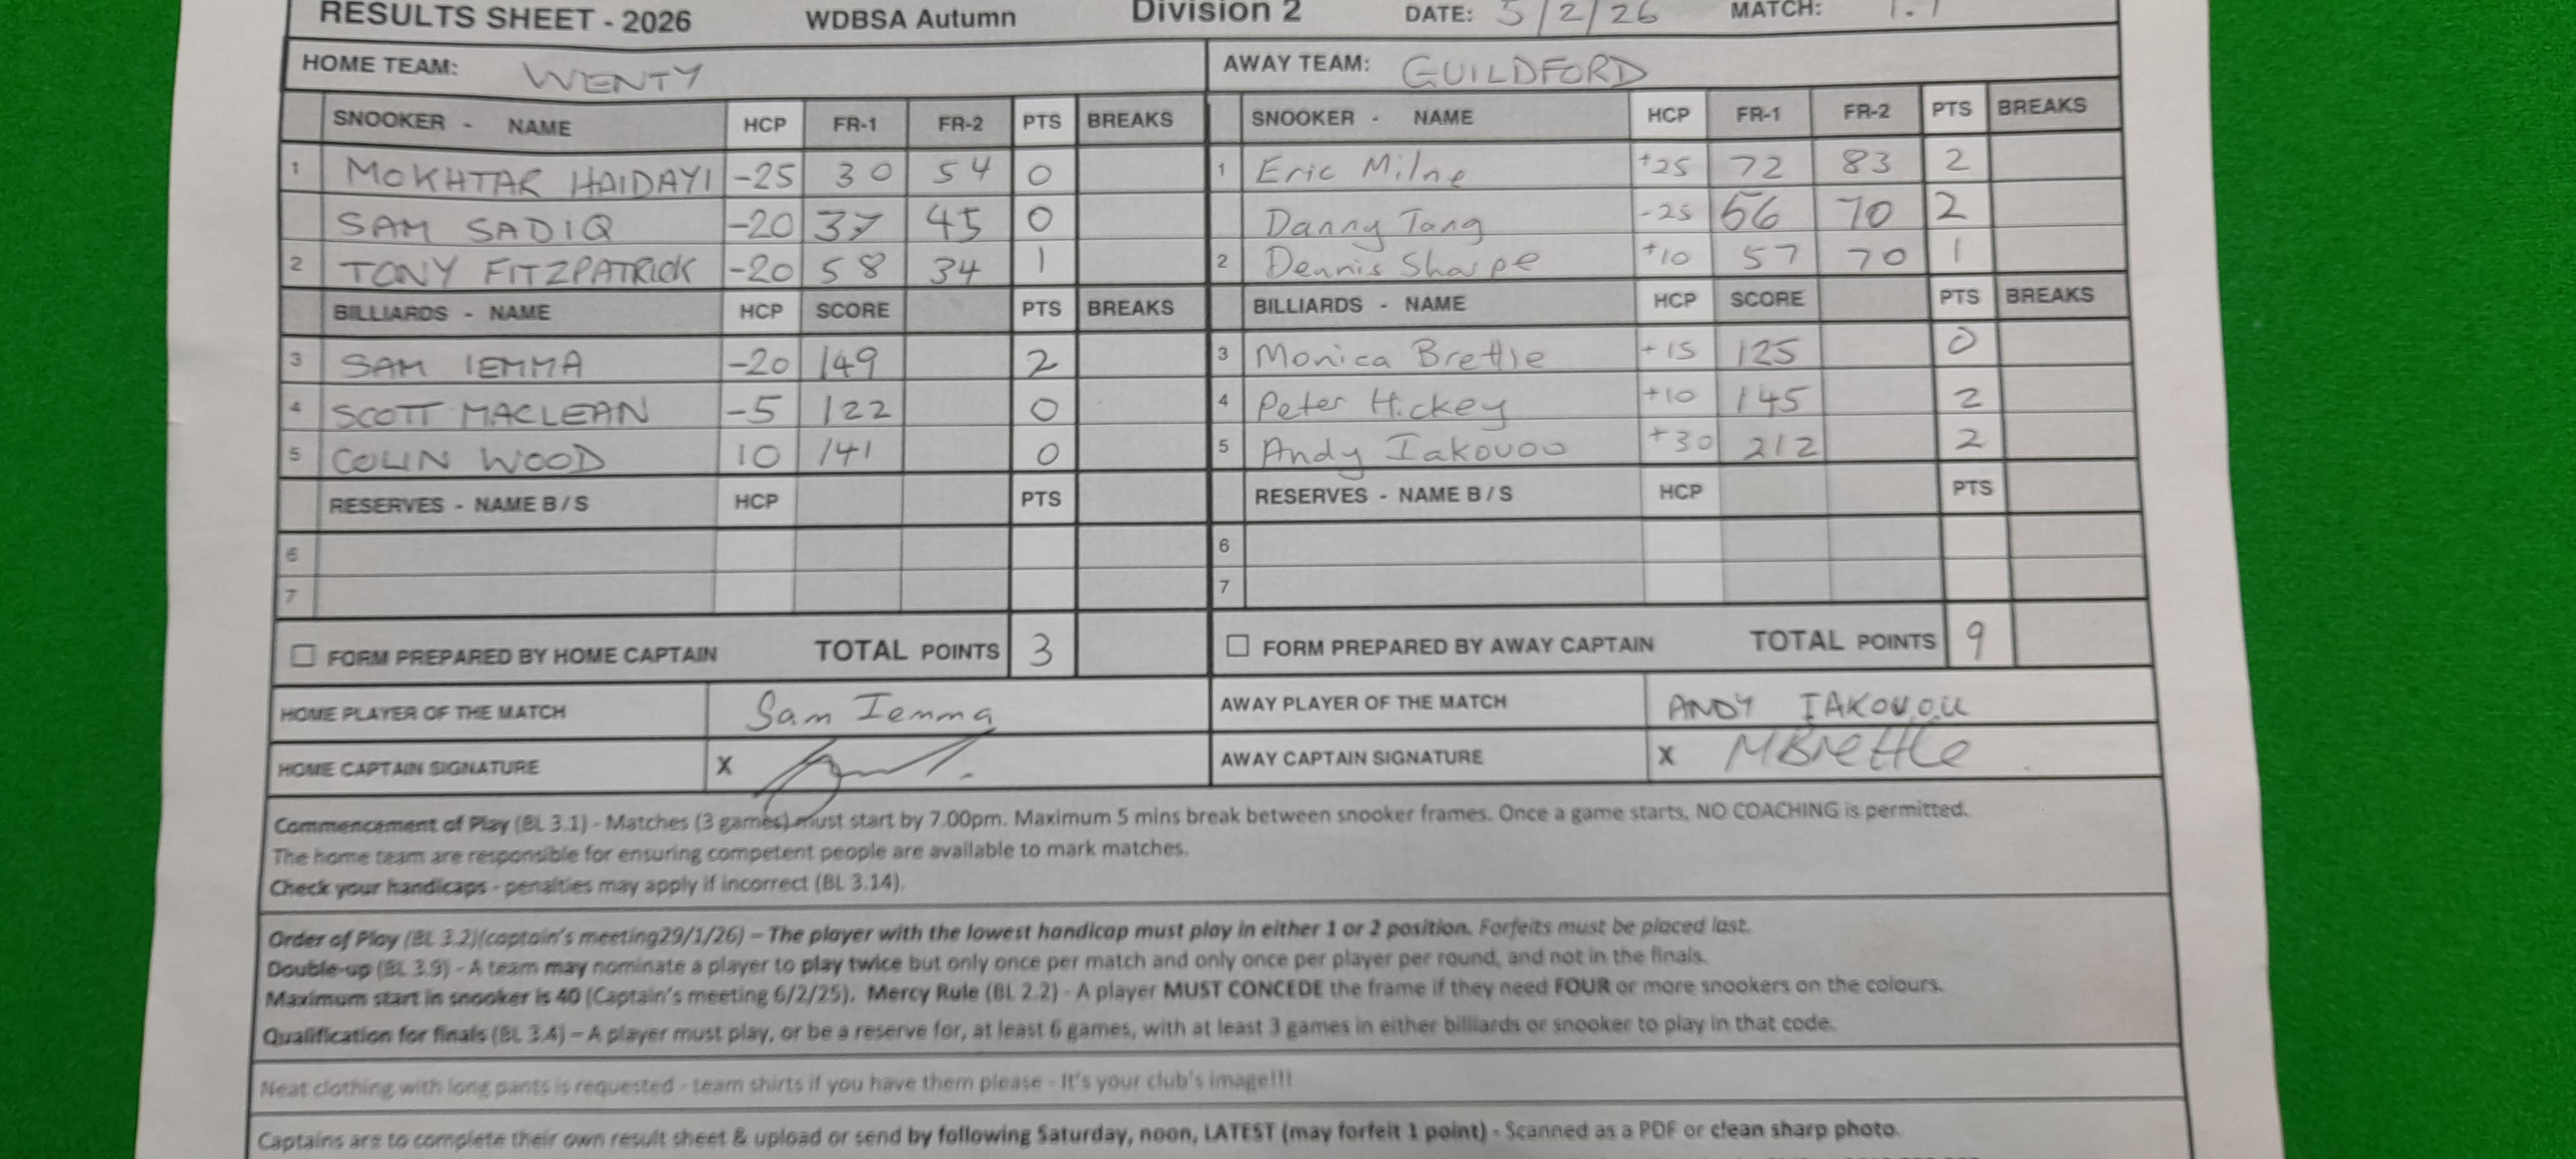 RESULTS SHEET - 2026 WDBSA Autumn Division 2 DATE: 5/2/26 MATCH: 1.1
HOME TEAM: WENTY AWAY TEAM: GUILDFORD
SNOOKER - NAME HCP FR-1 FR-2 PTS BREAKS SNOOKER - NAME HCP FR-1 FR-2 PTS BREAKS
1 MOKHTAR HAIDAYI -25 30 54 0 1 Eric Milne +25 72 83 2
SAM SADIQ -20 37 45 0 Danny Tang -25 56 70 2
2 TONY FITZPATRICK -20 58 34 1 2 Dennis Sharpe +10 57 70 1
BILLIARDS - NAME HCP SCORE PTS BREAKS BILLIARDS - NAME HCP SCORE PTS BREAKS
3 SAM IEMMA -20 149 2 3 Monica Brettle +15 125 0
4 SCOTT MACLEAN -5 122 0 4 Peter Hickey +10 145 2
5 COLIN WOOD 10 141 0 5 Andy Iakovou +30 212 2
RESERVES - NAME B / S HCP PTS RESERVES - NAME B / S HCP PTS
6 6
7 7
FORM PREPARED BY HOME CAPTAIN TOTAL POINTS 3 FORM PREPARED BY AWAY CAPTAIN TOTAL POINTS 9
HOME PLAYER OF THE MATCH Sam Iemma AWAY PLAYER OF THE MATCH ANDY IAKOVOU
HOME CAPTAIN SIGNATURE X AWAY CAPTAIN SIGNATURE X MBrettle
Commencement of Play (BL 3.1) - Matches (3 games) must start by 7.00pm. Maximum 5 mins break between snooker frames. Once a game starts, NO COACHING is permitted.
The home team are responsible for ensuring competent people are available to mark matches.
Check your handicaps - penalties may apply if incorrect (BL 3.14).
Order of Play (BL 3.2)(captain's meeting29/1/26) – The player with the lowest handicap must play in either 1 or 2 position. Forfeits must be placed last.
Double-up (BL 3.9) - A team may nominate a player to play twice but only once per match and only once per player per round, and not in the finals.
Maximum start in snooker is 40 (Captain's meeting 6/2/25). Mercy Rule (BL 2.2) - A player MUST CONCEDE the frame if they need FOUR or more snookers on the colours.
Qualification for finals (BL 3.4) – A player must play, or be a reserve for, at least 6 games, with at least 3 games in either billiards or snooker to play in that code.
Neat clothing with long pants is requested - team shirts if you have them please - It's your club's image!!!
Captains are to complete their own result sheet & upload or send by following Saturday, noon, LATEST (may forfeit 1 point) - Scanned as a PDF or clean sharp photo.